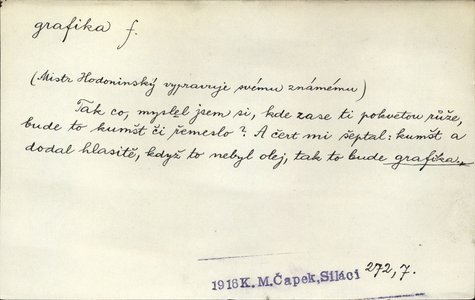 grafika f.
(Mistr Hodoninský vypravuje svému známému)
Tak co, myslel jsem si, kde zase ti pokvetou růže,
bude to kumšt či řemeslo? A čert mi šeptal: kumšt a
dodal hlasitě, když to nebyl olej, tak to bude grafika.
1916 K. M. Čapek, Siláci 272, 7.